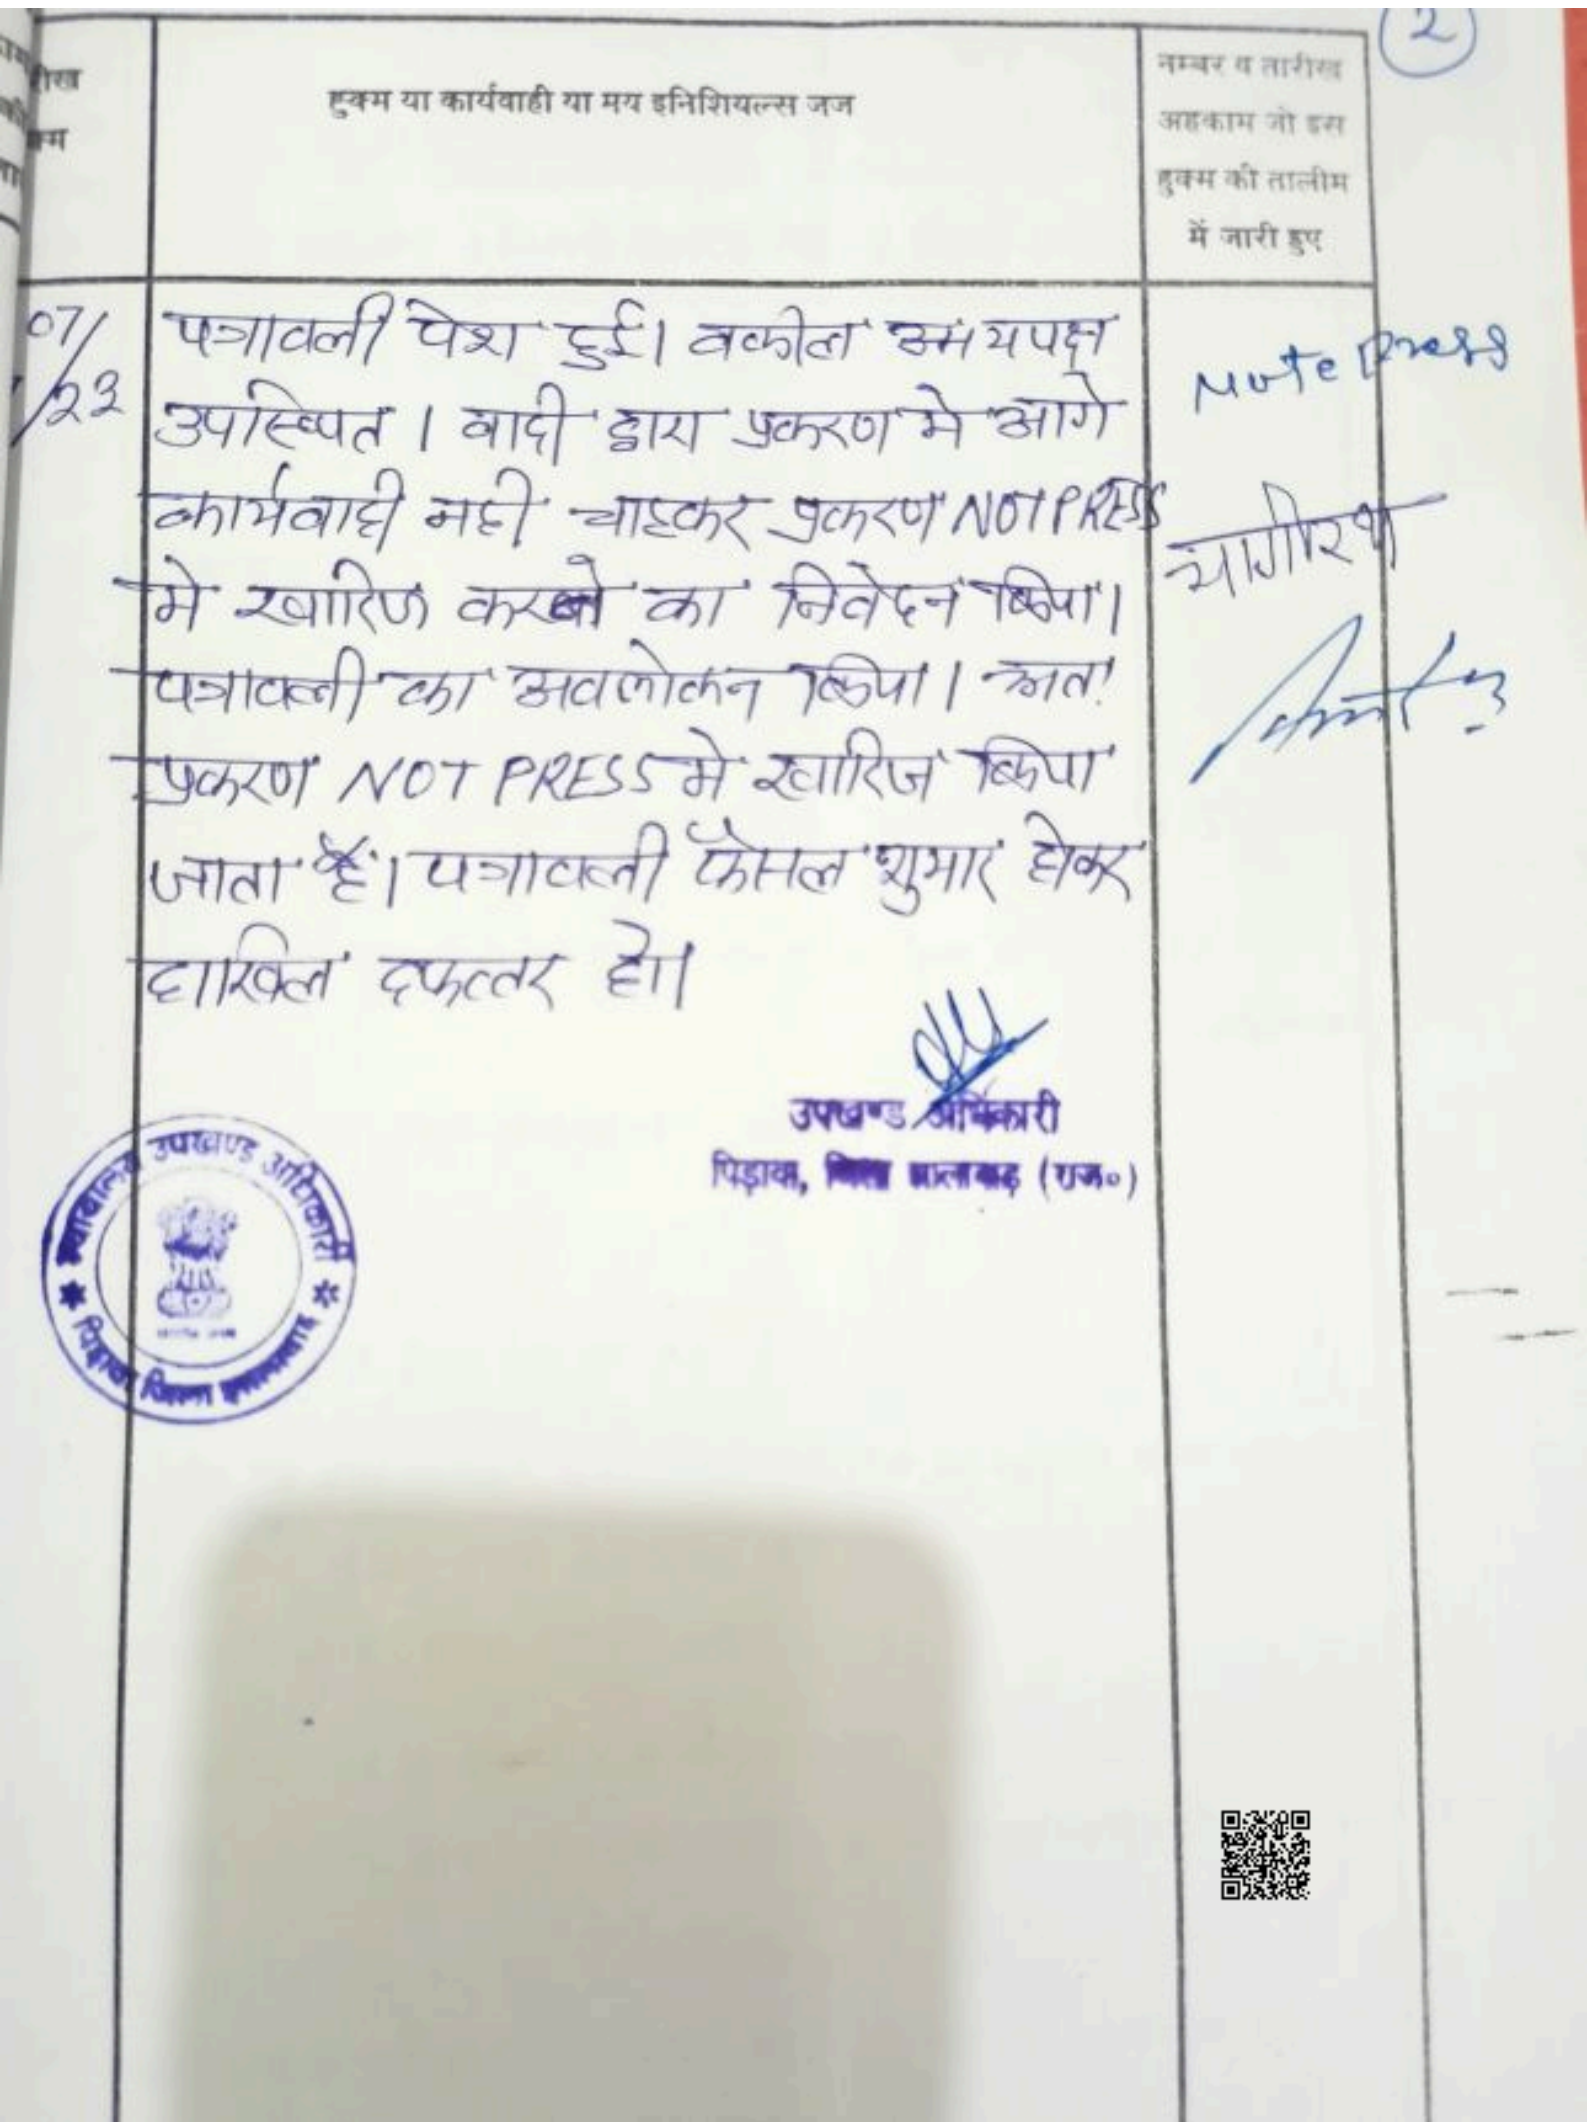 2
रीख
हुक्म या कार्यवाही या मय इनिशियल्स जज
नम्बर व तारीख
अहकाम जो इस
हुक्म की तालीम
में जारी हुए
07/
/23
पत्रावली पेश हुई। वकील उभयपक्ष
उपस्थित। वादी द्वारा प्रकरण मे आगे
कार्यवाही नही चाहकर प्रकरण NOT PRESS
मे खारिज करने का निवेदन किया।
पत्रावली का अवलोकन किया। अतः
प्रकरण NOT PRESS मे खारिज किया
जाता है। पत्रावली फैसल शुमार होकर
दाखिल दफ्तर हो।
Note Press
भागीरथ
उपखण्ड अधिकारी
पिड़ावा, जिला झालावाड़ (राज०)
न्यायालय उपखण्ड अधिकारी
पिड़ावा जिला झालावाड़